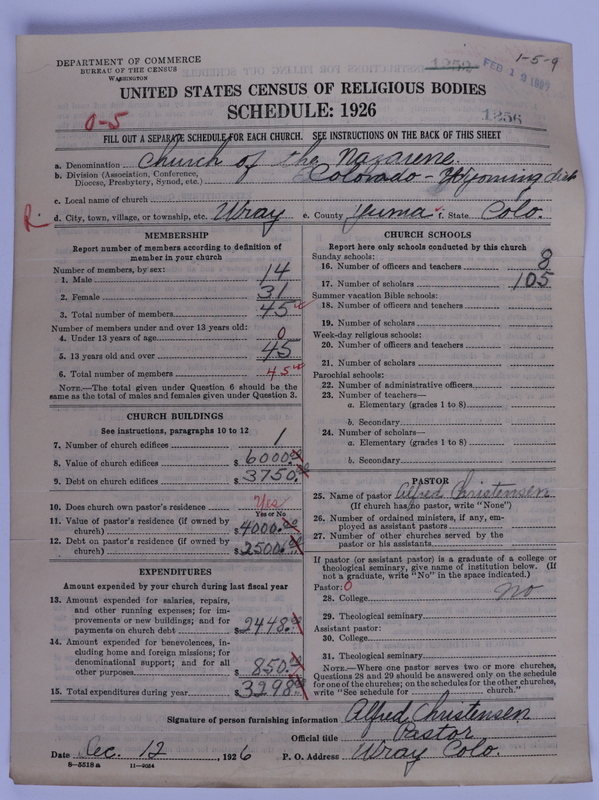 DEPARTMENT OF COMMERCE
BUREAU OF THE CENSUS
WASHINGTON
1252
FEB 12
1-5-9
UNITED STATES CENSUS OF RELIGIOUS BODIES
SCHEDULE: 1926
0-5
1256
FILL OUT A SEPARATE SCHEDULE FOR EACH CHURCH. SEE INSTRUCTIONS ON THE BACK OF THIS SHEET
a. Denomination Church of the Nazarene.
b. Division (Association, Conference, Diocese, Presbytery, Synod, etc.) Colorado - Wyoming dist
c. Local name of church
R. d. City, town, village, or township, etc. Wray e. County Yuma f. State Colo.
MEMBERSHIP
Report number of members according to definition of
member in your church
Number of members, by sex:
1. Male 14
2. Female 31
3. Total number of members 45
Number of members under and over 13 years old:
4. Under 13 years of age 0
5. 13 years old and over 45
6. Total number of members 45
NOTE.—The total given under Question 6 should be the
same as the total of males and females given under Question 3.
CHURCH BUILDINGS
See instructions, paragraphs 10 to 12
7. Number of church edifices 1
8. Value of church edifices $ 6000.00
9. Debt on church edifices $ 3750.00
10. Does church own pastor's residence Yes
Yes or No
11. Value of pastor's residence (if owned by
church) $ 4000.00
12. Debt on pastor's residence (if owned by
church) $ 2500.00
EXPENDITURES
Amount expended by your church during last fiscal year
13. Amount expended for salaries, repairs,
and other running expenses; for im-
provements or new buildings; and for
payments on church debt $ 2448.00
14. Amount expended for benevolences, in-
cluding home and foreign missions; for
denominational support; and for all
other purposes $ 850.00
15. Total expenditures during year $ 3298.00
CHURCH SCHOOLS
Report here only schools conducted by this church
Sunday schools:
16. Number of officers and teachers 8
17. Number of scholars 105
Summer vacation Bible schools:
18. Number of officers and teachers
19. Number of scholars
Week-day religious schools:
20. Number of officers and teachers
21. Number of scholars
Parochial schools:
22. Number of administrative officers
23. Number of teachers—
a. Elementary (grades 1 to 8)
b. Secondary
24. Number of scholars—
a. Elementary (grades 1 to 8)
b. Secondary
PASTOR
25. Name of pastor Alfred Christensen
(If church has no pastor, write "None")
26. Number of ordained ministers, if any, em-
ployed as assistant pastors
27. Number of other churches served by the
pastor or his assistants
If pastor (or assistant pastor) is a graduate of a college or
theological seminary, give name of institution below. (If
not a graduate, write "No" in the space indicated.)
Pastor: 0
28. College No
29. Theological seminary
Assistant pastor:
30. College
31. Theological seminary
NOTE.—Where one pastor serves two or more churches,
Questions 28 and 29 should be answered only on the schedule
for one of the churches; on the schedules for the other churches,
write "See schedule for church."
Signature of person furnishing information Alfred Christensen
Official title Pastor
Date Dec. 12, 1926 P. O. Address Wray Colo.
8—5518a 11—9034